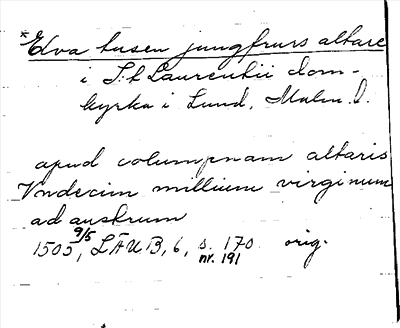 *Elva tusen jungfrurs altare
i S:t Laurentii dom-
kyrka i Lund, Malm. l.
apud columpnam altaris
Vndecim millium virginum
ad austrum
1505 9/5, LÄUB, 6, s. 170. orig.
nr. 191